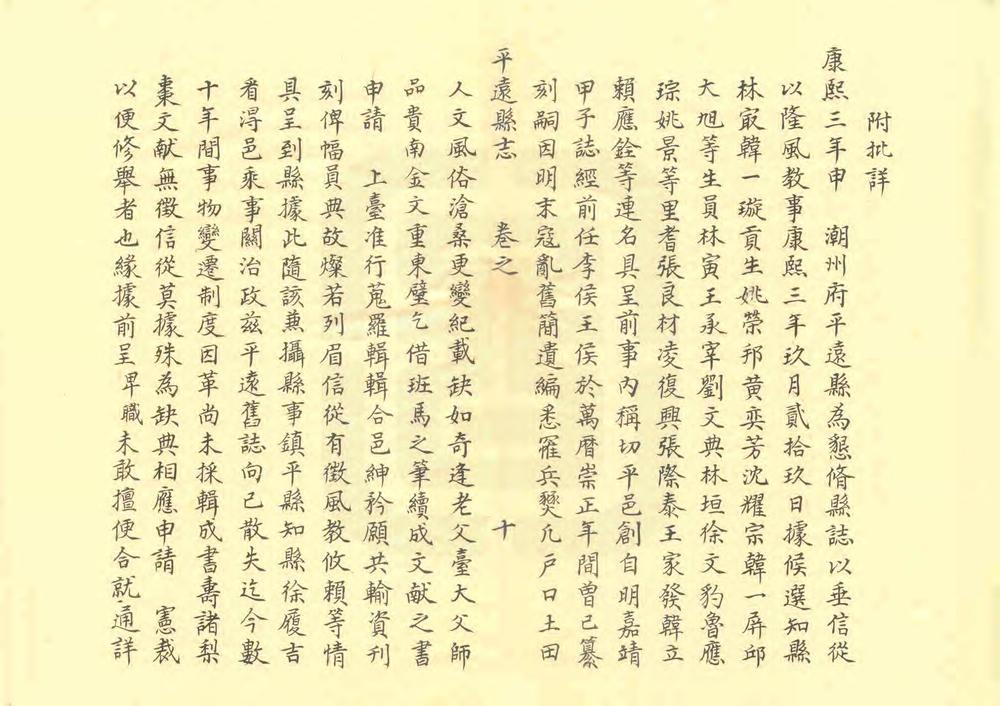 附批詳
康熙三年申　潮州府平遠縣為懇脩縣誌以垂信從
以隆風教事康熙三年玖月貳拾玖日據候選知縣
林㝡韓一璇貢生姚榮邦黃奕芳沈耀宗韓一屏邱
大旭等生員林寅王承宰劉文典林垣徐文豹魯應
琮姚景等里耆張良材凌復興張際泰王家發韓立
賴應銓等連名具呈前事內稱切平邑創自明嘉靖
甲子誌經前任李侯王侯於萬曆崇正年間曾已纂
刻嗣因明末寇亂舊簡遺編悉罹兵燹凢戶口土田
平遠縣志　卷之　十
人文風俗滄桑更變紀載缺如奇逢老父臺大父師
品貴南金文重東壁乞借班馬之筆續成文献之書
申請　上臺准行蒐羅輯輯合邑紳衿願共輸資刊
刻俾幅員典故燦若列眉信從有徵風教攸賴等情
具呈到縣據此隨該兼攝縣事鎮平縣知縣徐履吉
看得邑乘事關治政兹平遠舊誌向已散失迄今數
十年間事物變遷制度因革尚未採輯成書壽諸梨
棗文献無徵信從莫據殊為缺典相應申請　憲裁
以便修舉者也緣據前呈卑職未敢擅便合就通詳